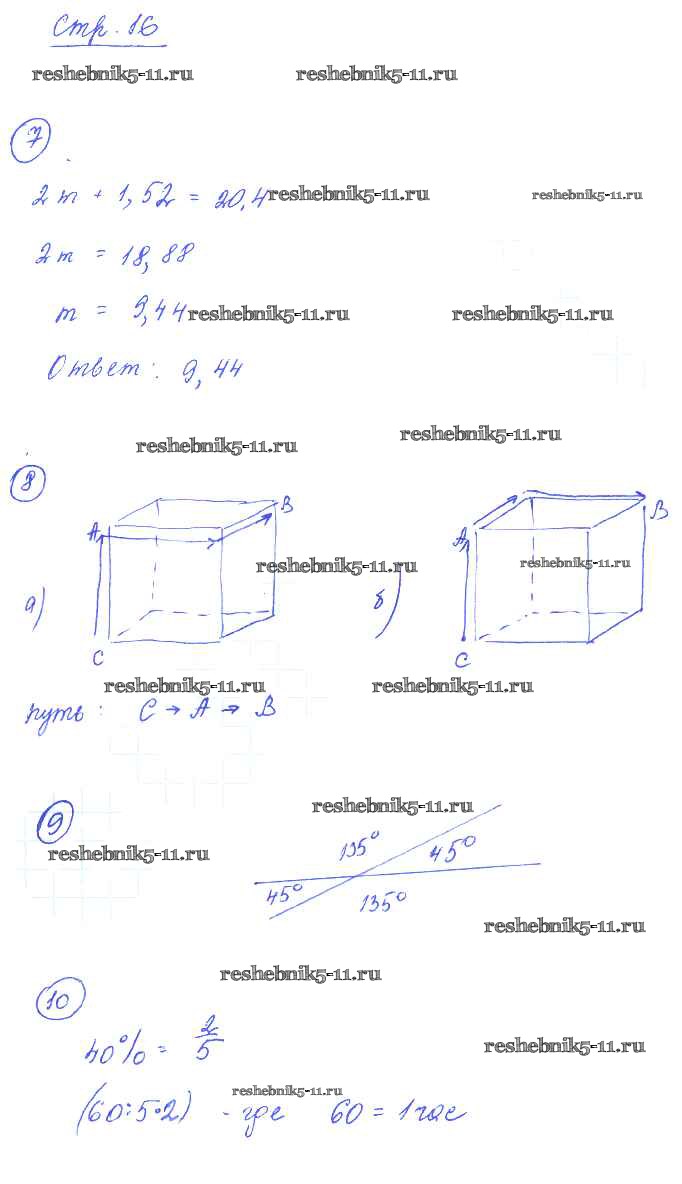 Стр. 16
reshebnik5-11.ru reshebnik5-11.ru
7
2m + 1,52 = 20,4 reshebnik5-11.ru reshebnik5-11.ru
2m = 18,88
m = 9,44 reshebnik5-11.ru reshebnik5-11.ru
Ответ: 9,44
reshebnik5-11.ru reshebnik5-11.ru
8
A B A B
reshebnik5-11.ru reshebnik5-11.ru
а) б)
C C
reshebnik5-11.ru reshebnik5-11.ru
путь: C → A → B
reshebnik5-11.ru
9
reshebnik5-11.ru 135° 45°
45° 135°
reshebnik5-11.ru
reshebnik5-11.ru
10
40% = 2/5 reshebnik5-11.ru
reshebnik5-11.ru
(60:5·2) - где 60 = 1 час